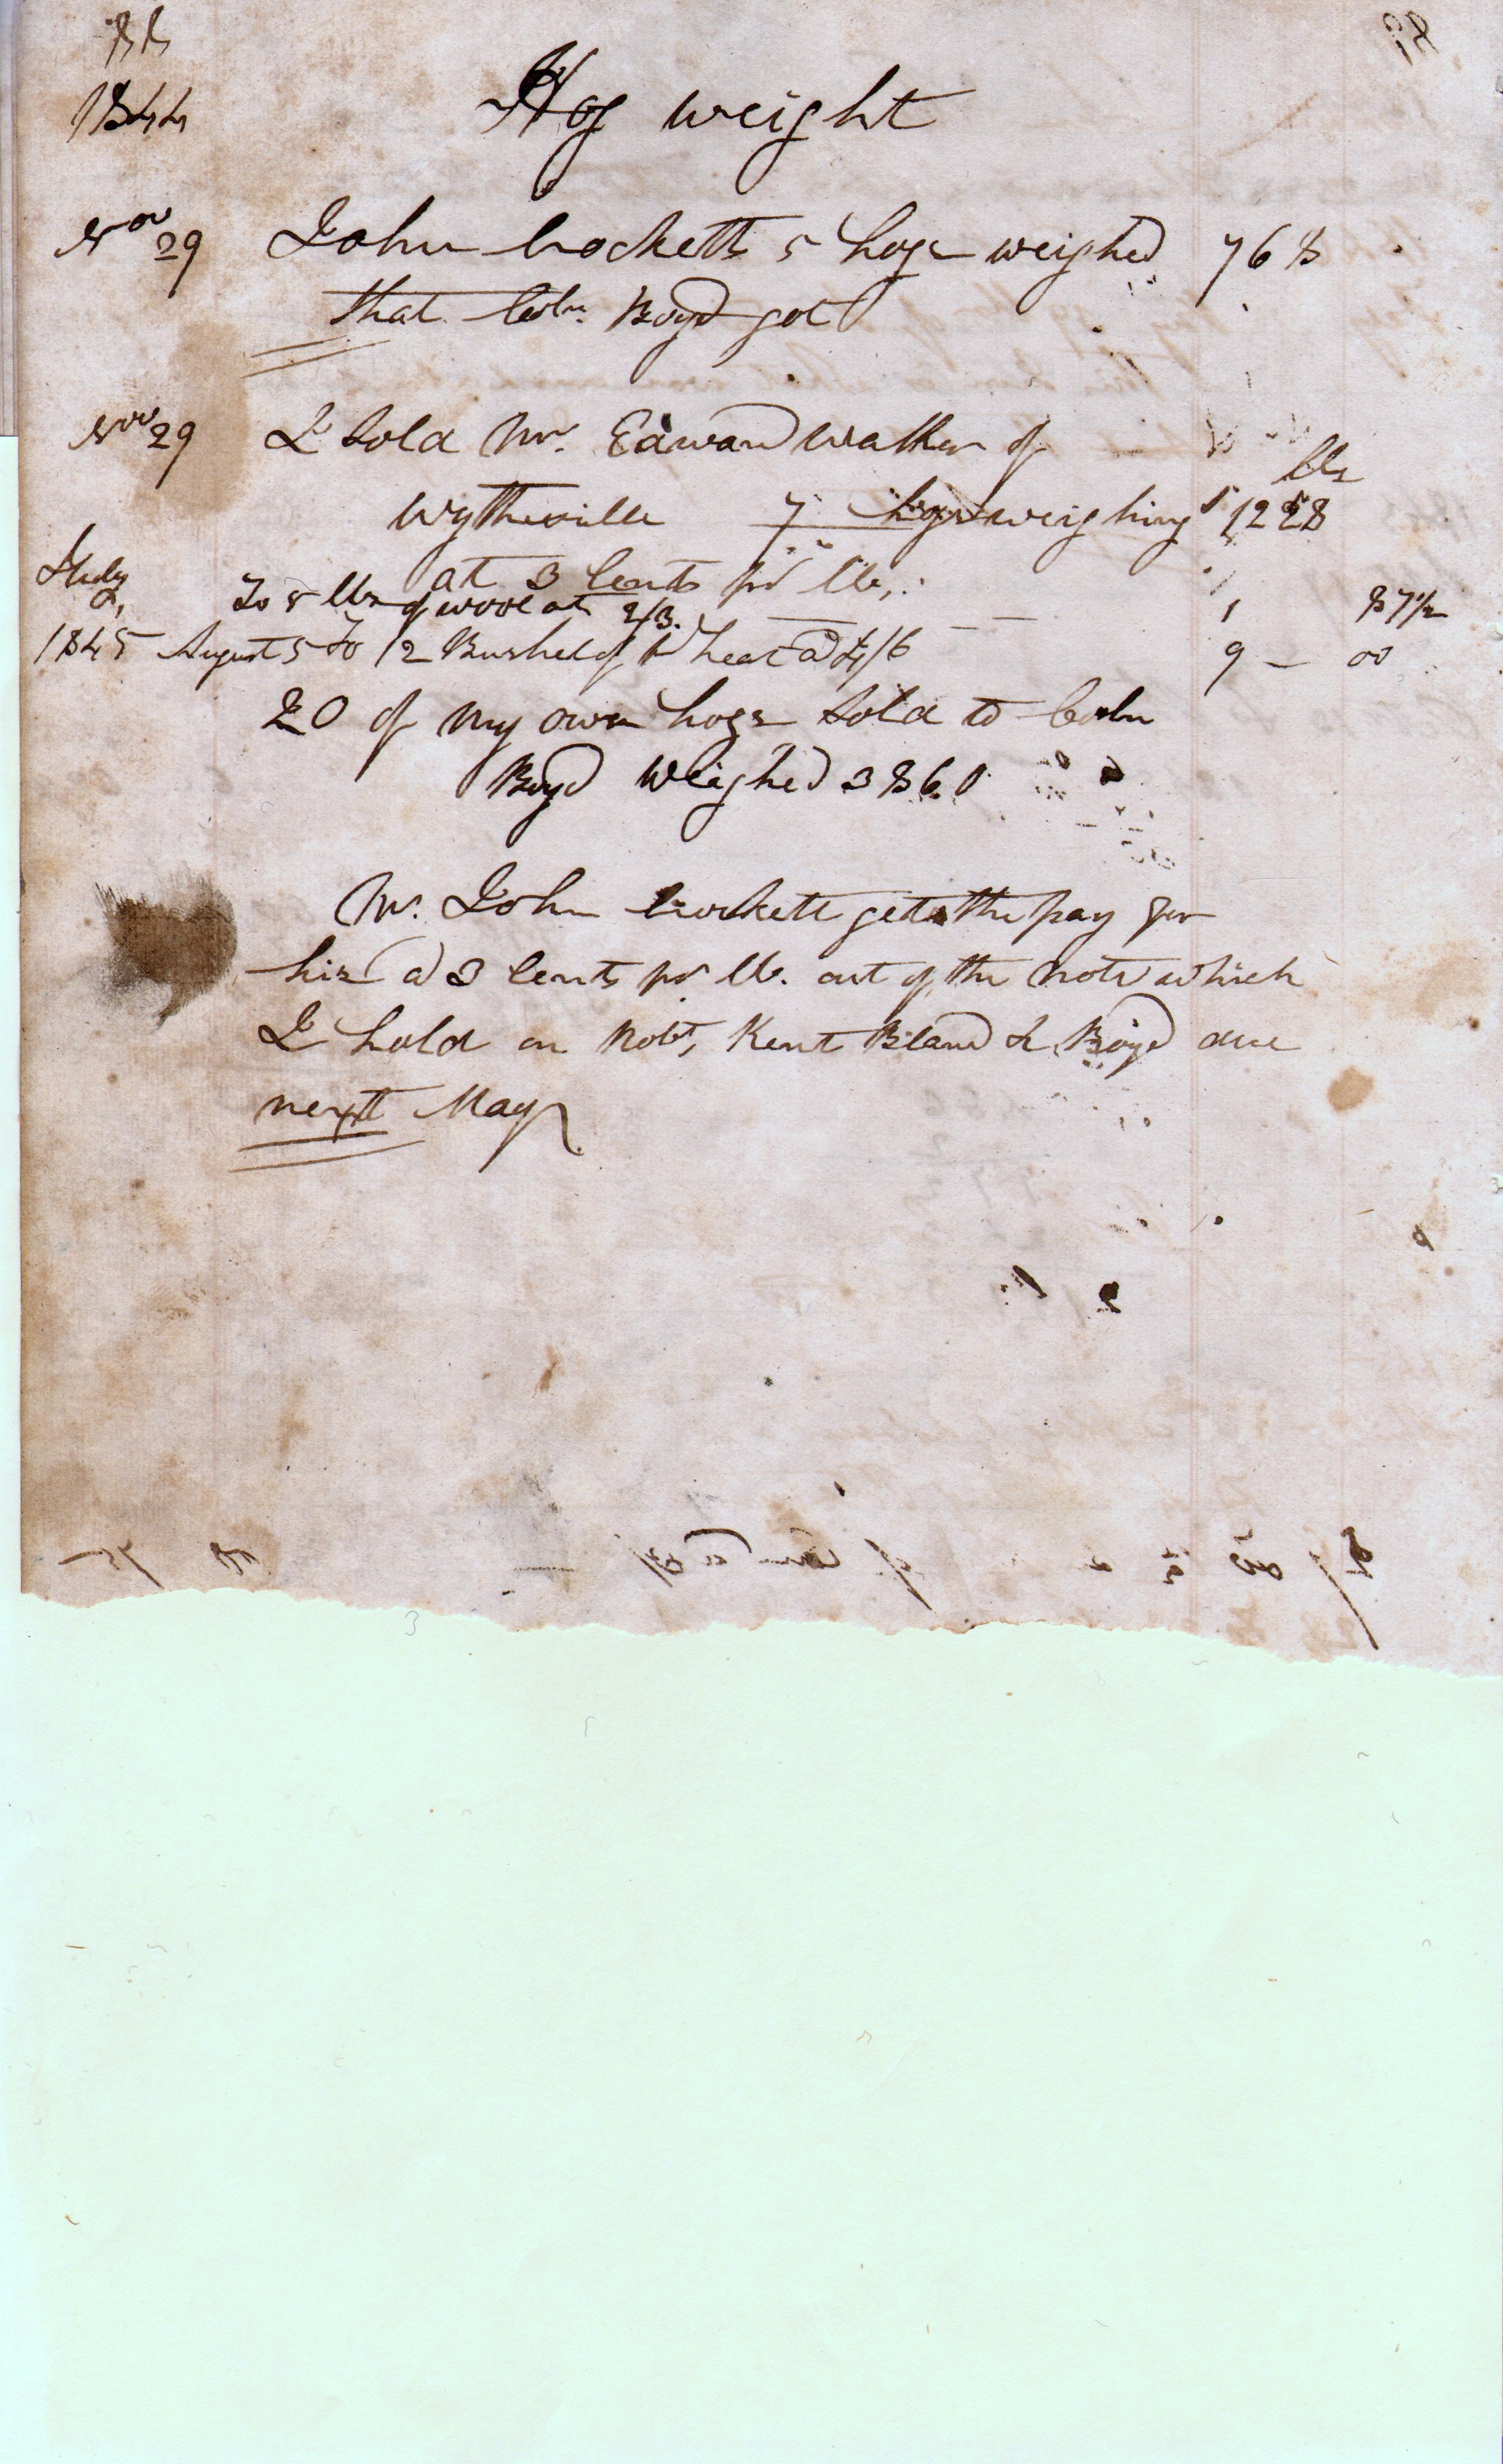 84
1844 Hog weight
Nov 29 John Crocketts 5 hogs weighed 768
that Coln. Boyd got
Nov 29 I sold Mr. Edward Walker of
lbs
Wytheville 7 hogs weighing 1228
at 3 Cents pr lb,.
July
2, To 5 lbs of wool at 2/3. 1 87½
1845 August 5 To 12 Bushel of Wheat @ 4/6 9 — 00
20 of my own hogs sold to Coln
Boyd Weighed 3860
Mr. John Crockett gets the pay for
his @ 3 Cents pr lb. out of the note which
I hold on Robt, Kent Bland & Boyd due
next May